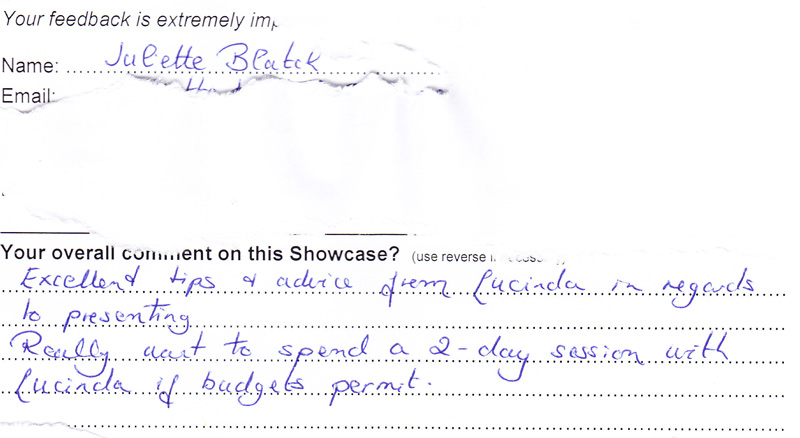 Your feedback is extremely
Name: Juliette
Email:
Your overall comment on this Showcase? (use reverse
Excellent tips & advice from Lucinda in regards
to presenting
Really want to spend a 2-day session with
Lucinda if budgets permit.